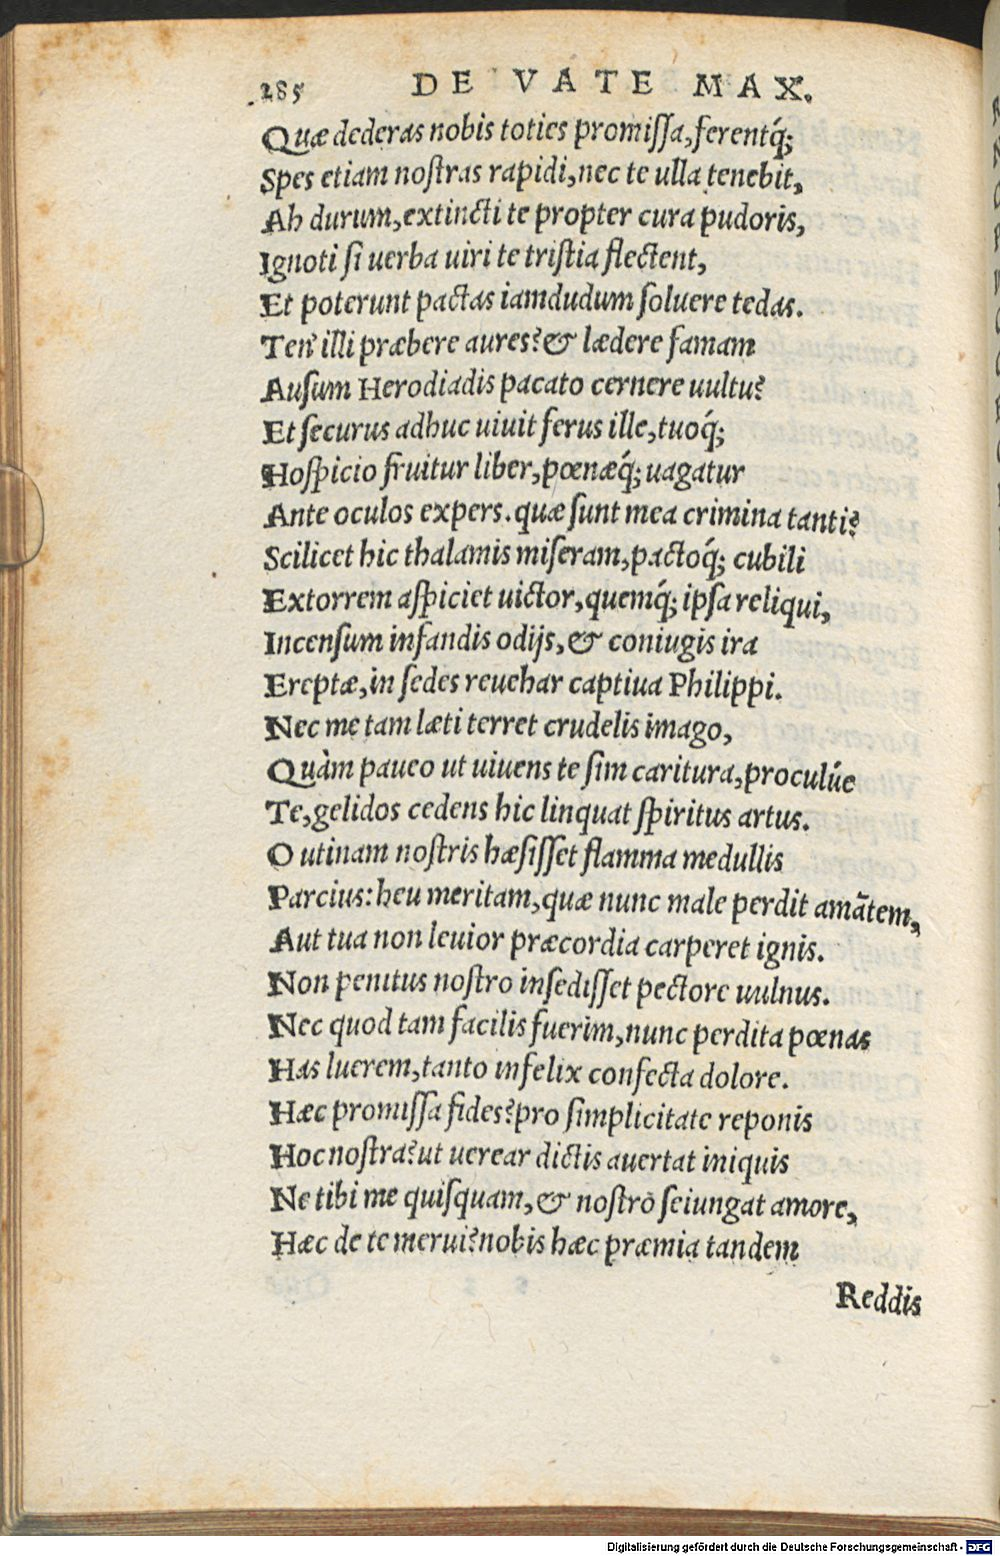 285 DE VATE MAX.
Quæ dederas nobis toties promiſſa, ferentq́;
Spes etiam noſtras rapidi, nec te ulla tenebit,
Ah durum, extincti te propter cura pudoris,
Ignoti ſi uerba uiri te triſtia flectent,
Et poterunt pactas iamdudum ſoluere tedas.
Ten' illi præbere aures? & lædere famam
Auſum Herodiadis pacato cernere uultu?
Et ſecurus adhuc uiuit ferus ille, tuoq́;
Hoſpicio fruitur liber, pœnæq́; uagatur
Ante oculos expers. quæ ſunt mea crimina tanti?
Scilicet hic thalamis miſeram, pactoq́; cubili
Extorrem aſpiciet uictor, quemq́; ipſa reliqui,
Incenſum infandis odijs, & coniugis ira
Ereptæ, in ſedes reuehar captiua Philippi.
Nec me tam læti terret crudelis imago,
Quàm paueo ut uiuens te ſim caritura, proculúe
Te, gelidos cedens hic linquat ſpiritus artus.
O utinam noſtris hæſiſſet flamma medullis
Parcius: heu meritam, quæ nunc male perdit amātem,
Aut tua non leuior præcordia carperet ignis.
Non penitus noſtro inſediſſet pectore uulnus.
Nec quod tam facilis fuerim, nunc perdita pœnas
Has luerem, tanto infelix confecta dolore.
Hæc promiſſa fides? pro ſimplicitate reponis
Hoc noſtra? ut uerear dictis auertat iniquis
Ne tibi me quiſquam, & noſtrō ſeiungat amore,
Hæc de te merui? nobis hæc præmia tandem
Reddis
Digitalisierung gefördert durch die Deutsche Forschungsgemeinschaft - DFG